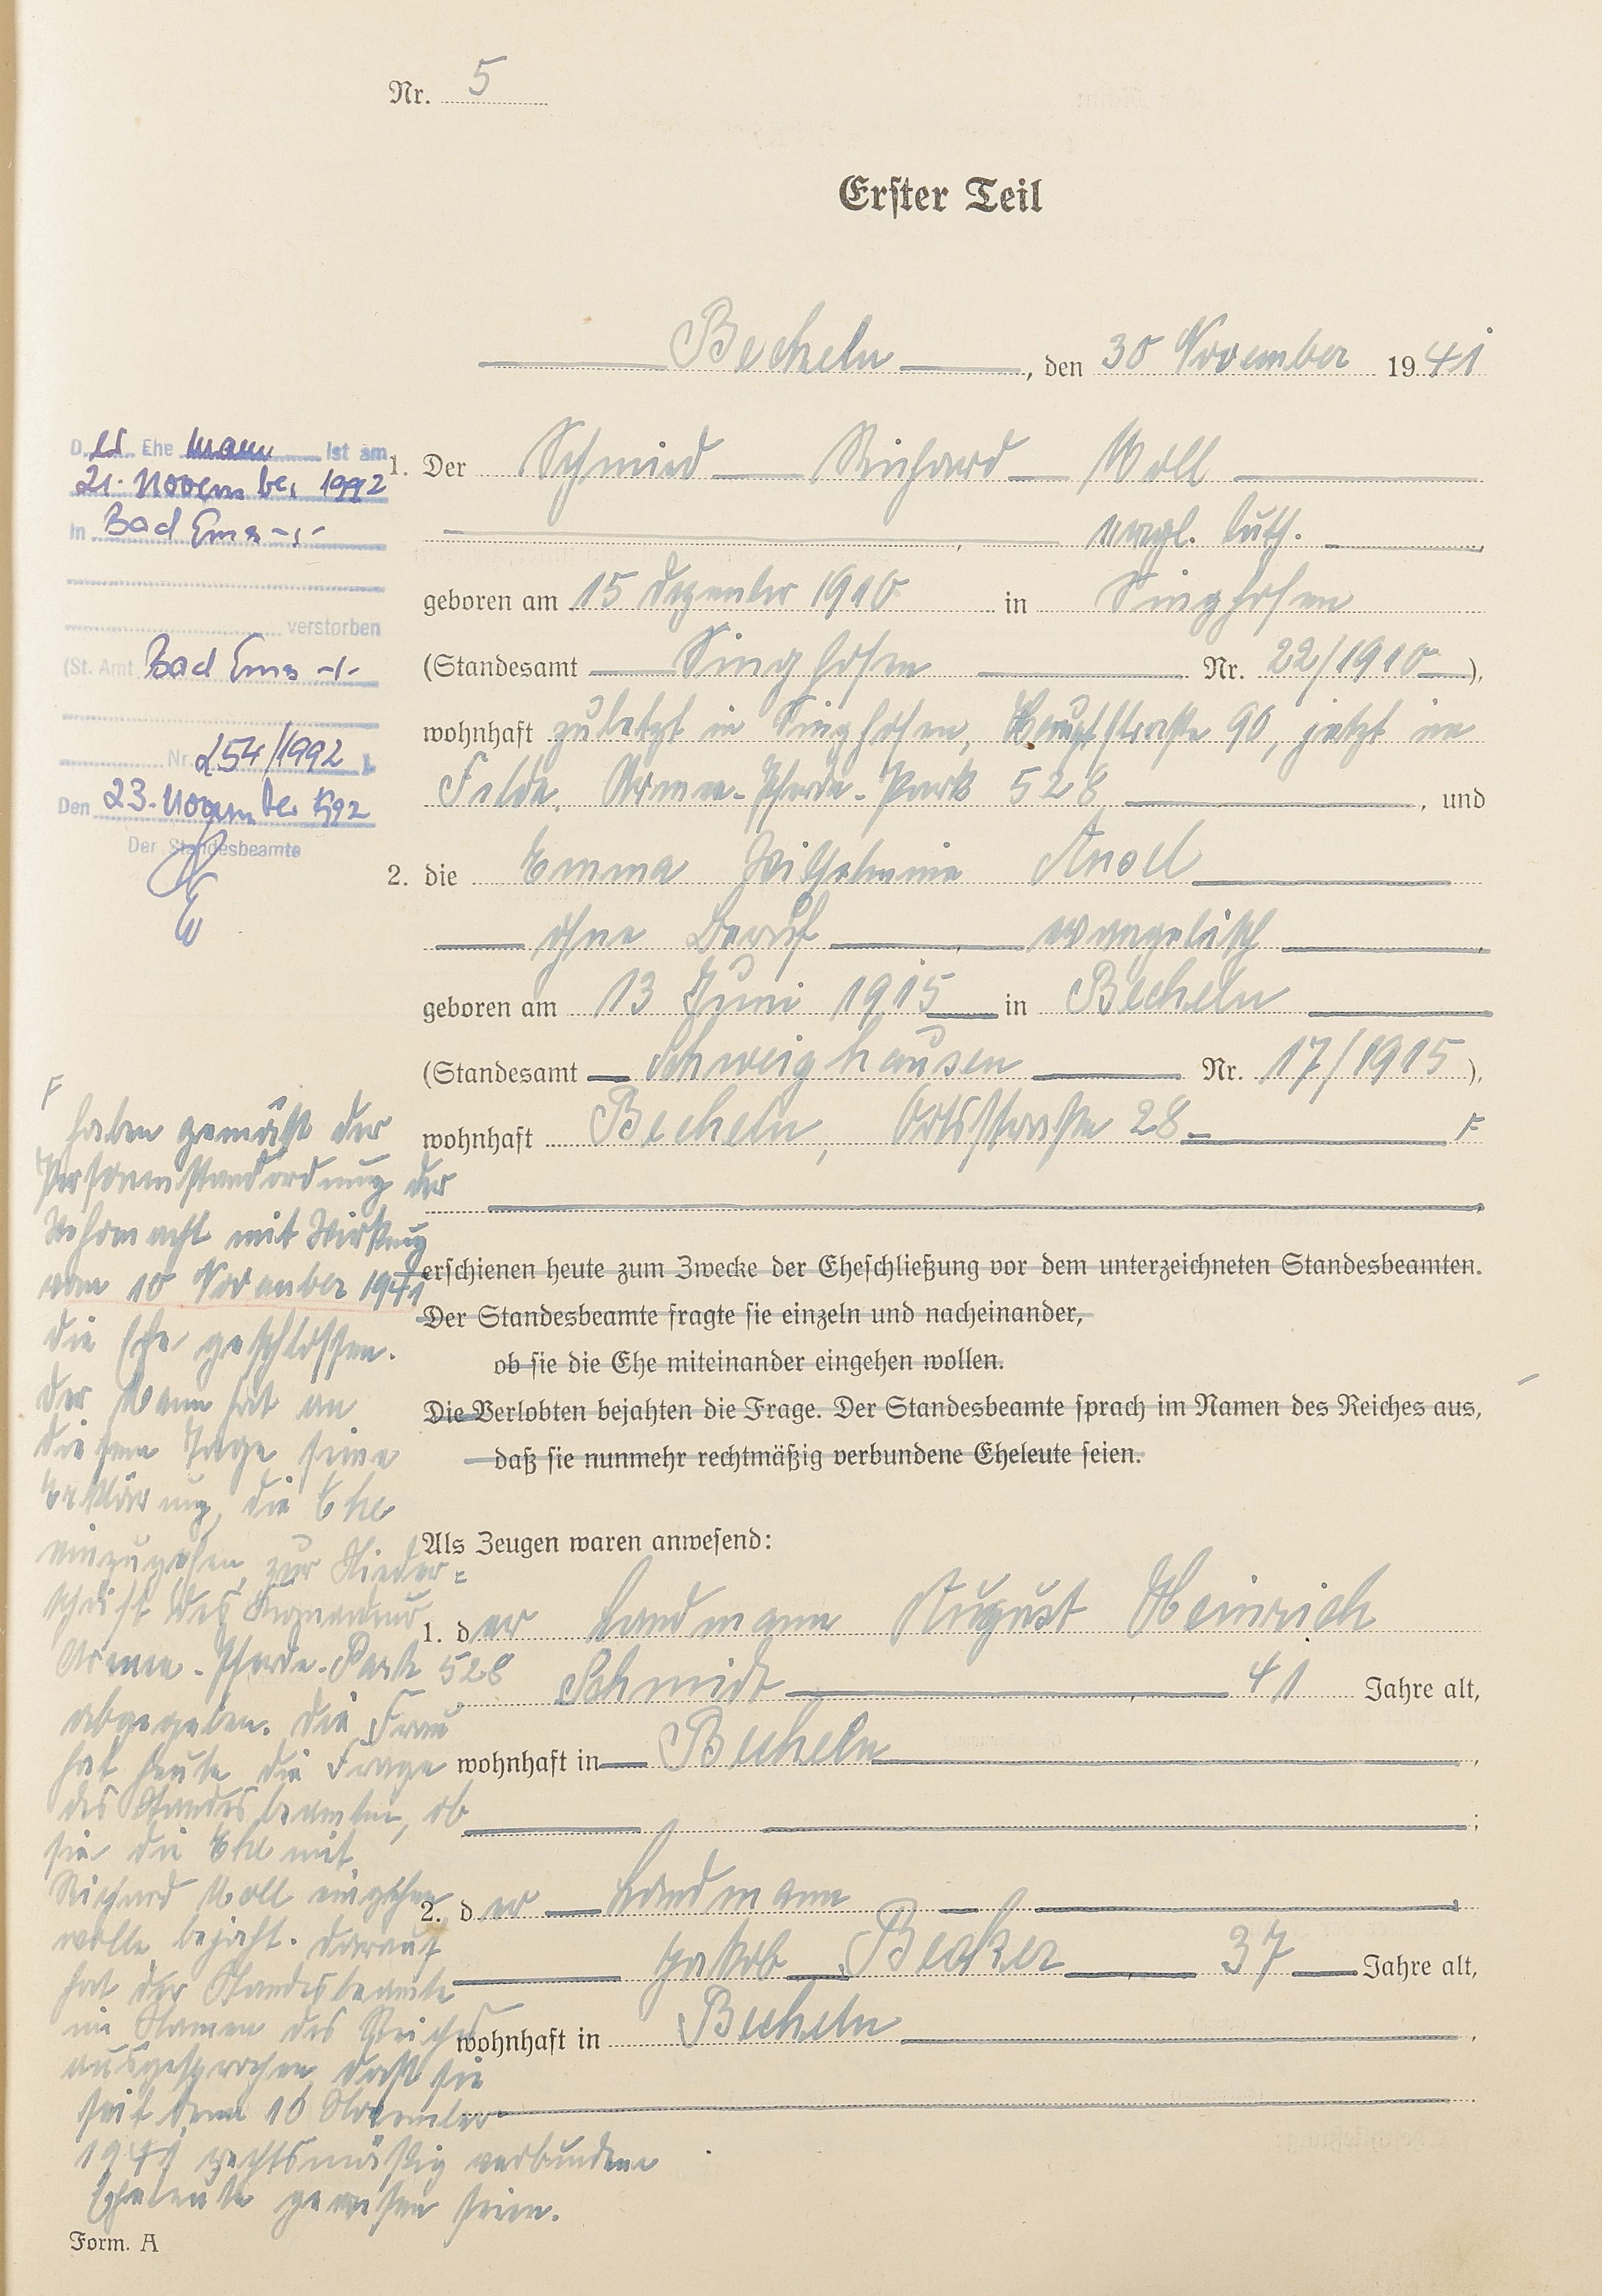 Nr. 5
Erster Teil
Becheln, den 30 November 1941
1. Der Schmied Richard Moll
evgl. luth.
geboren am 15 Dezember 1910 in Singhofen
(Standesamt Singhofen Nr. 22/1910),
wohnhaft zuletzt in Singhofen, Hauptstraße 90, jetzt im
Felde, Armee-Pferde-Park 528, und
2. die Emma Wilhelmine
ohne Beruf, evangelisch
geboren am 13 Juni 1915 in Becheln
(Standesamt Schweighausen Nr. 17/1915),
wohnhaft Becheln, Ortsstraße 28 F
erschienen heute zum Zwecke der Eheschließung vor dem unterzeichneten Standesbeamten.
Der Standesbeamte fragte sie einzeln und nacheinander,
ob sie die Ehe miteinander eingehen wollen.
Die Verlobten bejahten die Frage. Der Standesbeamte sprach im Namen des Reiches aus,
daß sie nunmehr rechtmäßig verbundene Eheleute seien.
Als Zeugen waren anwesend:
1. der Landmann August Heinrich
Schmidt, 41 Jahre alt,
wohnhaft in Becheln,
;
2. der Landmann
Jakob Becker, 37 Jahre alt,
wohnhaft in Becheln,
D er Ehe mann ist am
21. November 1992
in Bad Ems -,-
verstorben
(St. Amt Bad Ems -,-
Nr. 254/1992
Den 23. November 1992
Der Standesbeamte
F
haben gemäß der
Personenstandordnung der
Wehrmacht mit Wirkung
vom 10 November 1941
die Ehe geschlossen.
Der Mann hat an
diesem Tage seine
Erklärung, die Ehe
einzugehen, zur Nieder=
schrift des
Armee-Pferde-Park 528
abgegeben. Die Frau
hat heute die Frage
des Standesbeamten, ob
sie die Ehe mit
Richard Moll eingehen
wolle bejaht. Darauf
hat der Standesbeamte
im Namen des Reiches
ausgesprochen, daß sie
seit dem 10 November
1941 rechtsmäßig verbundene
Eheleute gewesen seien.
Form. A